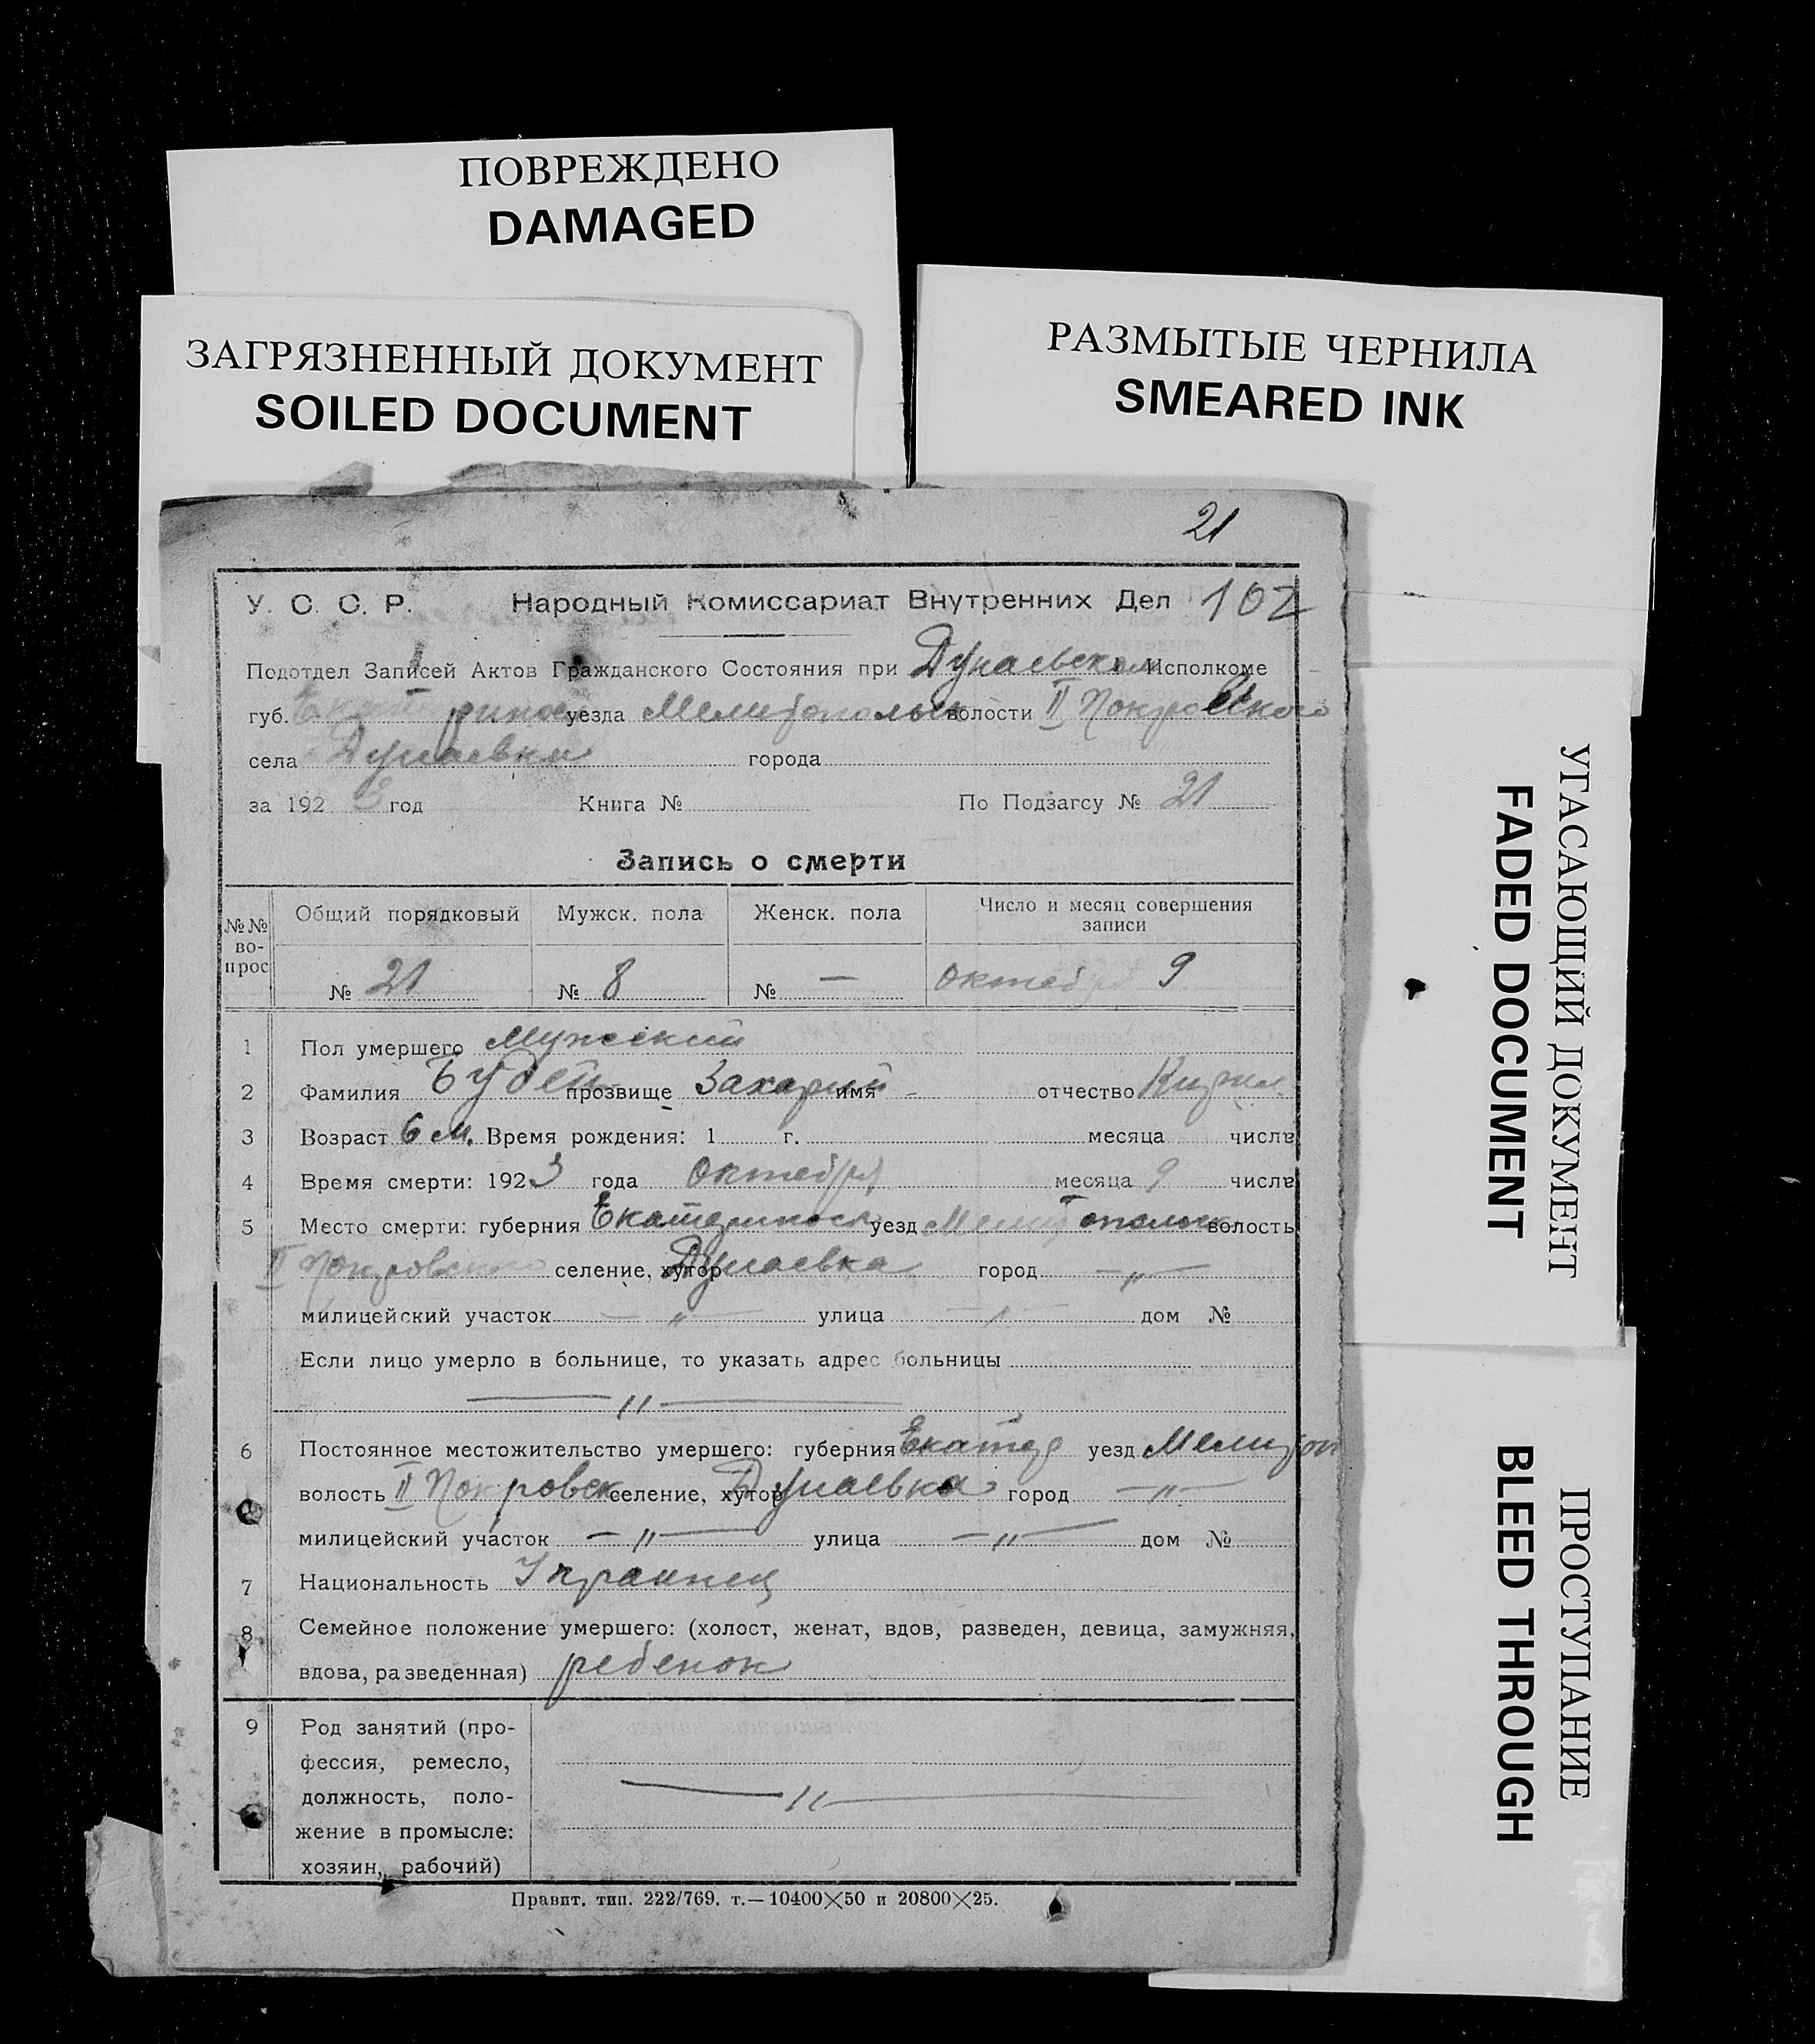 ПОВРЕЖДЕНО
DAMAGED
ЗАГРЯЗНЕННЫЙ ДОКУМЕНТ
SOILED DOCUMENT
РАЗМЫТЫЕ ЧЕРНИЛА
SMEARED INK
УГАСАЮЩИЙ ДОКУМЕНТ
FADED DOCUMENT
ПРОСТУПАНИЕ
BLEED THROUGH
21
У. С. С. Р. Народный Комиссариат Внутренних Дел 102
Подотдел Записей Актов Гражданского Состояния при Дунаевском Исполкоме
губ. Екатеринос уезда Мелитопольск волости II Покровского
села Дунаевки города
за 192 3 год Книга № По Подзагсу № 21
Запись о смерти
№№ во-прос Общий порядковый Мужск. пола Женск. пола Число и месяц совершения записи
№ 21 № 8 № — октября 9
1 Пол умершего Мужский
2 Фамилия прозвище Захарий имя отчество
3 Возраст 6 м. Время рождения: 1 г. месяца числа
4 Время смерти: 1923 года Октября месяца 9 числа
5 Место смерти: губерния Екатеринос уезд Мелитопольск волость
II Покровского селение, хутор Дунаевка город — „ —
милицейский участок — „ — улица — „ — дом №
Если лицо умерло в больнице, то указать адрес больницы
— „ —
6 Постоянное местожительство умершего: губерния Екатер уезд Мелитоп
волость II Покровск селение, хутор Дунаевка город — „ —
милицейский участок — „ — улица — „ — дом №
7 Национальность Украинец
8 Семейное положение умершего: (холост, женат, вдов, разведен, девица, замужняя,
вдова, разведенная) ребенок
9 Род занятий (про-
фессия, ремесло,
должность, поло- — „ —
жение в промысле:
хозяин, рабочий)
Правит. тип. 222/769. т.—10400×50 и 20800×25.